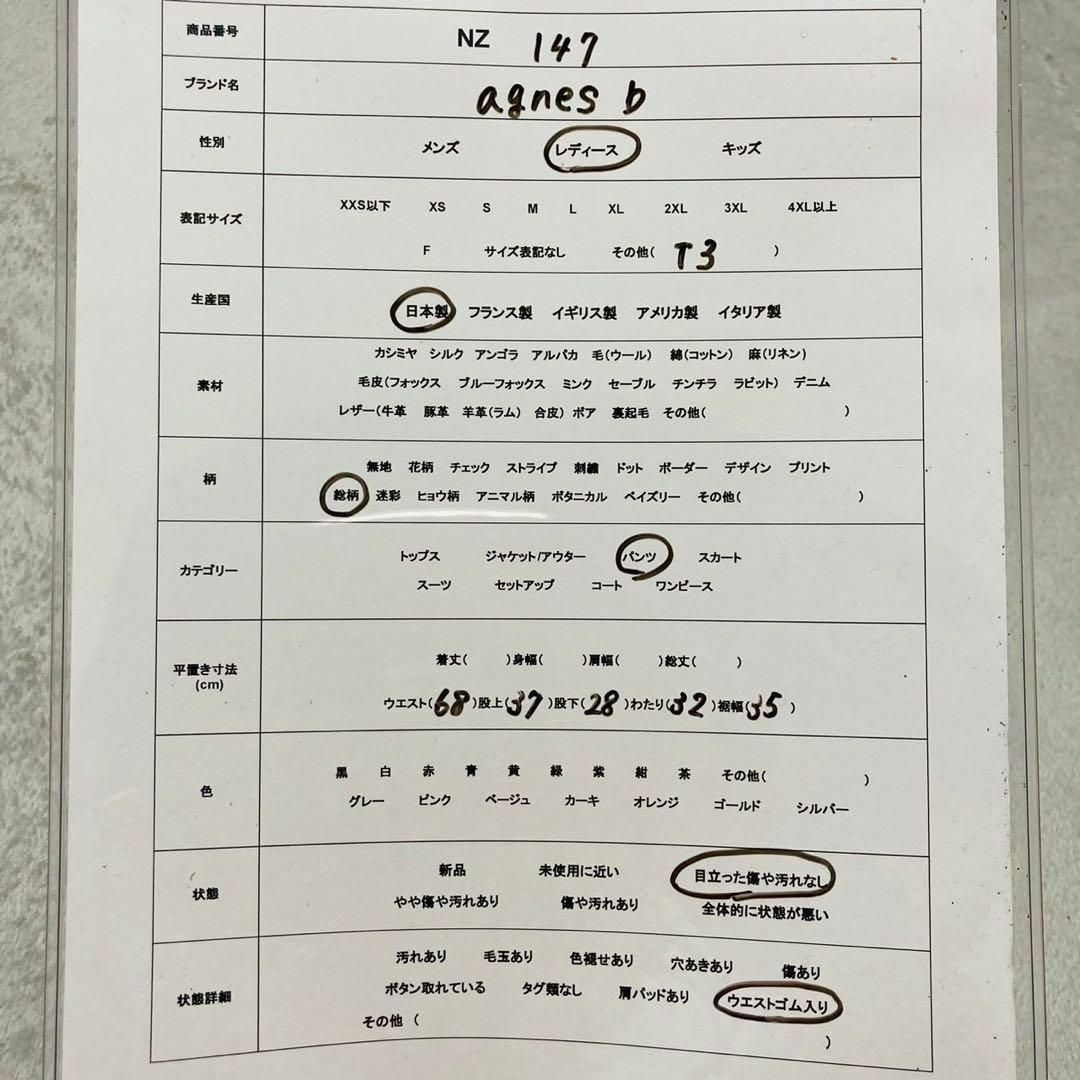 商品番号 NZ 147
ブランド名 agnes b
性別 メンズ レディース キッズ
表記サイズ XXS以下 XS S M L XL 2XL 3XL 4XL以上
F サイズ表記なし その他( T3 )
生産国 日本製 フランス製 イギリス製 アメリカ製 イタリア製
素材 カシミヤ シルク アンゴラ アルパカ 毛(ウール) 綿(コットン) 麻(リネン)
毛皮(フォックス ブルーフォックス ミンク セーブル チンチラ ラビット) デニム
レザー(牛革 豚革 羊革(ラム) 合皮) ボア 裏起毛 その他( )
柄 無地 花柄 チェック ストライプ 刺繍 ドット ボーダー デザイン プリント
総柄 迷彩 ヒョウ柄 アニマル柄 ボタニカル ペイズリー その他( )
カテゴリー トップス ジャケット/アウター パンツ スカート
スーツ セットアップ コート ワンピース
平置き寸法 (cm) 着丈( )身幅( )肩幅( )総丈( )
ウエスト(68)股上(37)股下(28)わたり(32)裾幅(35)
色 黒 白 赤 青 黄 緑 紫 紺 茶 その他( )
グレー ピンク ベージュ カーキ オレンジ ゴールド シルバー
状態 新品 未使用に近い 目立った傷や汚れなし
やや傷や汚れあり 傷や汚れあり 全体的に状態が悪い
状態詳細 汚れあり 毛玉あり 色褪せあり 穴あきあり 傷あり
ボタン取れている タグ類なし 肩パッドあり ウエストゴム入り
その他 ( )